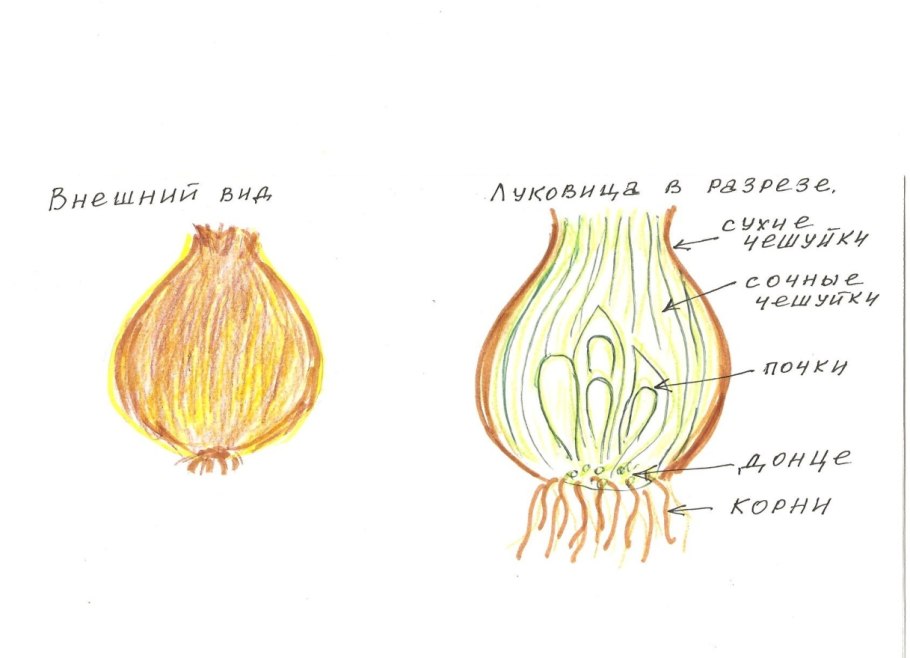 Внешний вид
Луковица в разрезе.
сухие
чешуйки
сочные
чешуйки
почки
донце
корни